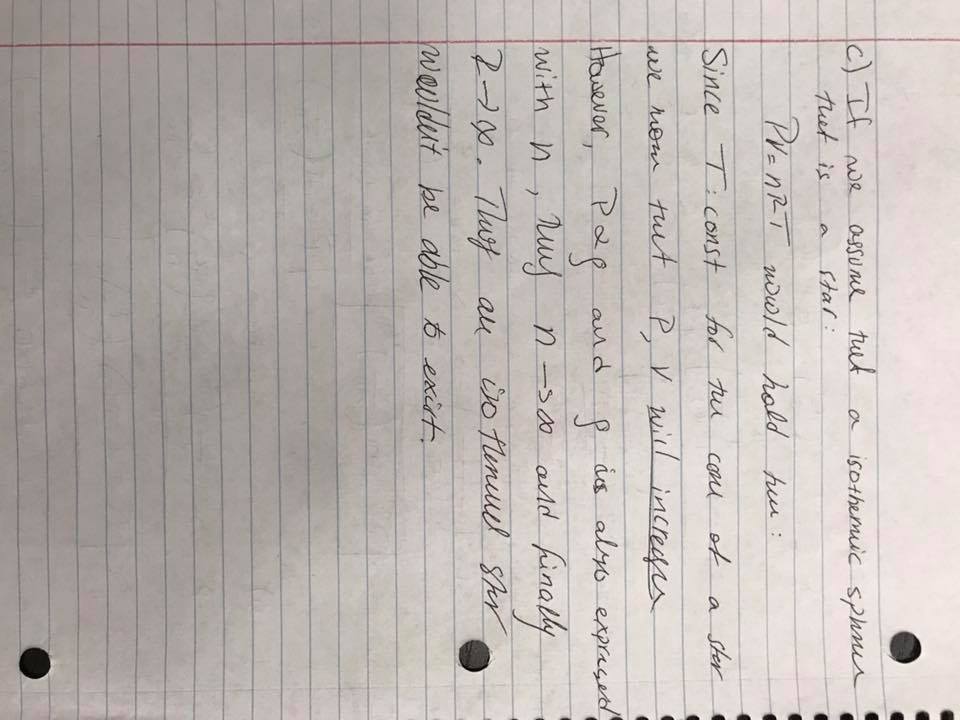 c) If we assume that a isothermic sphere
that is a star:
PV = nRT would hold true:
Since T: const for the core of a star
we know that P, V will increase
However, P ∝ ρ and ρ is also expressed
with n, Thus n → ∞ and finally
R → ∞. Thus an isothermal star
wouldn't be able to exist.